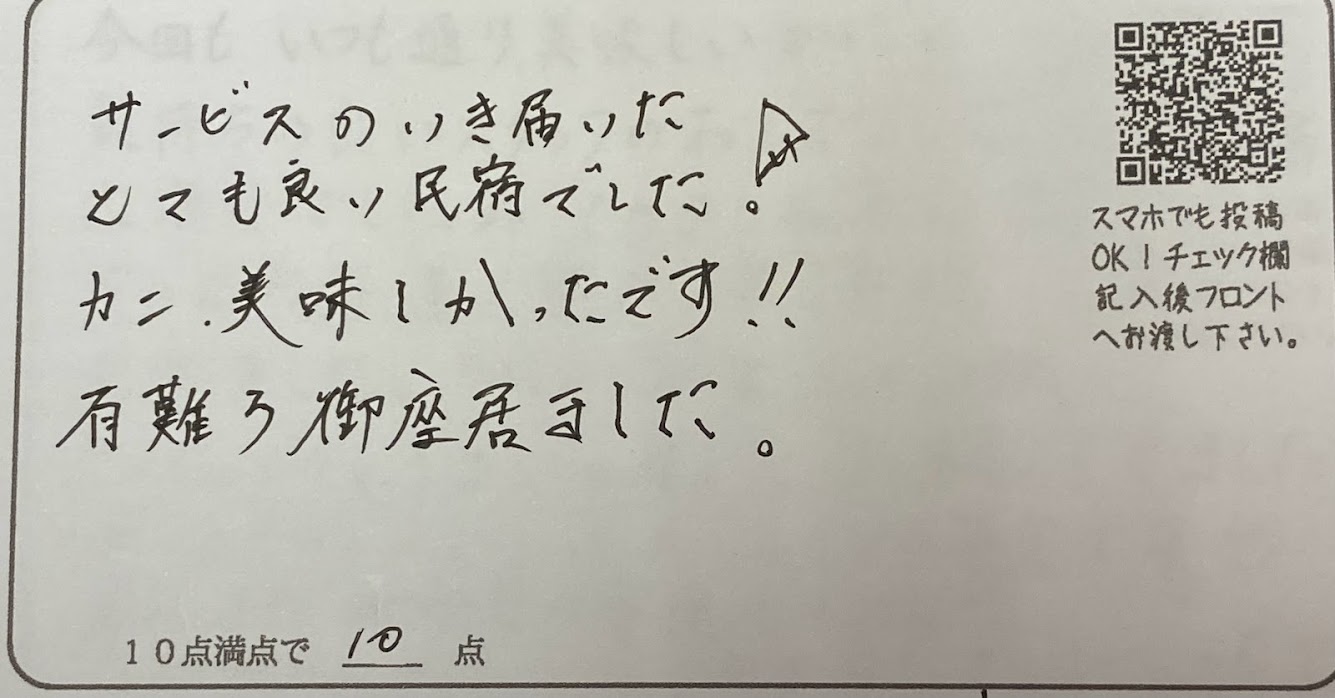 サービスのいき届いた
とても良い民宿でした。
カニ.美味しかったです!!
有難う御座居ました。
10点満点で 10 点
スマホでも投稿
OK!チェック欄
記入後フロント
へお渡し下さい。